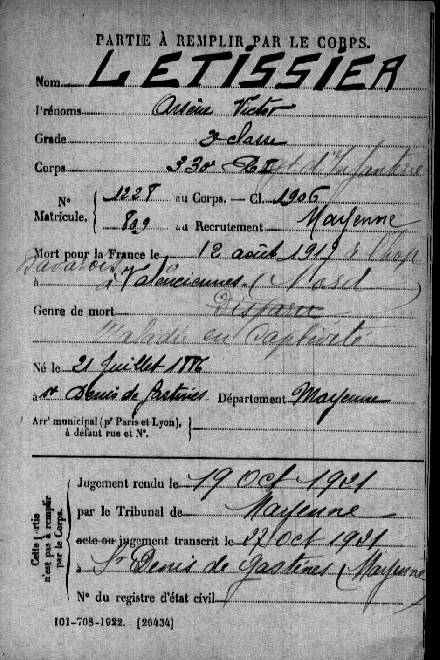 PARTIE À REMPLIR PAR LE CORPS.
Nom LETISSIER
Prénoms Arsène Victor
Grade 2e classe
Corps 330 RI d'Infanterie
N° 1228 au Corps. — Cl. 1906
Matricule. 809 au Recrutement Mayenne
Mort pour la France le 12 août 1917 à l'hop
Bavarois
à Valenciennes (Nord)
Genre de mort Disparu
Maladie en Captivité
Né le 21 Juillet 1886
à St Denis de Gastines Département Mayenne
Arrt municipal (pr Paris et Lyon),
à défaut rue et N°.
Cette partie
n'est pas à remplir
par le Corps.
Jugement rendu le 19 Oct 1921
par le Tribunal de Mayenne
acte ou jugement transcrit le 27 oct 1921
à St Denis de Gastines (Mayenne)
N° du registre d'état civil
101-708-1922. [26434]